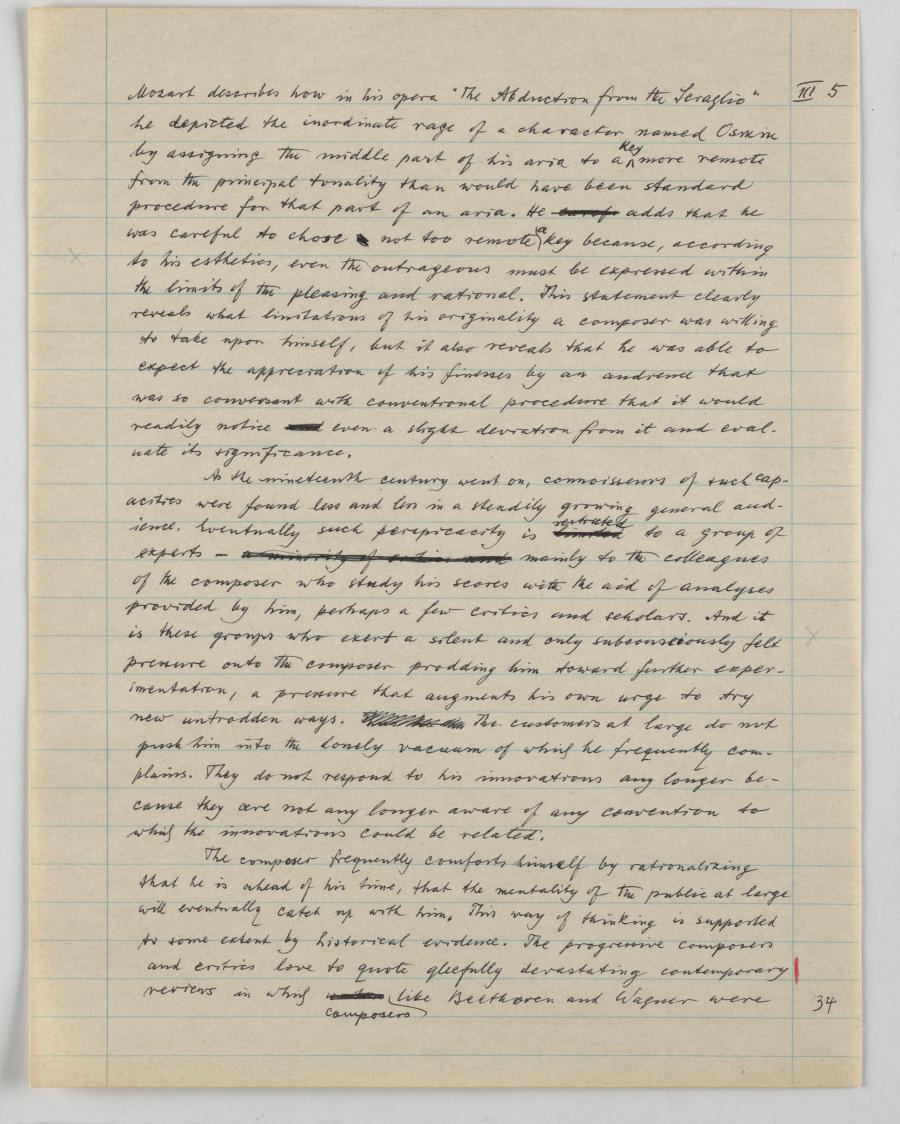 Mozart describes how in his opera "The Abduction from the Seraglio" III 5
he depicted the inordinate rage of a character named Osmin
by assigning the middle part of his aria to a key more remote
from the principal tonality than would have been standard
procedure for that part of an aria. He adds that he
was careful to chose not too remote a key because, according
to his esthetics, even the outrageous must be expressed within
the limits of the pleasing and rational. This statement clearly
reveals what limitations of his originality a composer was willing
to take upon himself, but it also reveals that he was able to
expect the appreciation of his finesses by an audience that
was so conversant with conventional procedure that it would
readily notice even a slight deviation from it and eval-
uate its significance.
As the nineteenth century went on, connoisseurs of such cap-
acities were found less and less in a steadily growing general aud-
ience. Eventually such perspicacity is restricted to a group of
experts – mainly to the colleagues
of the composer who study his scores with the aid of analyses
provided by him, perhaps a few critics and scholars. And it
is these groups who exert a silent and only subconsciously felt
pressure onto the composer prodding him toward further exper-
imentation, a pressure that augments his own urge to try
new untrodden ways. The customers at large do not
push him into the lonely vacuum of which he frequently com-
plains. They do not respond to his innovations any longer be-
cause they are not any longer aware of any convention to
which the innovations could be related.
The composer frequently comforts himself by rationalizing
that he is ahead of his time, that the mentality of the public at large
will eventually catch up with him. This way of thinking is supported
to some extent by historical evidence. The progressive composers
and critics love to quote gleefully devastating contemporary
reviews in which composers like Beethoven and Wagner were 34